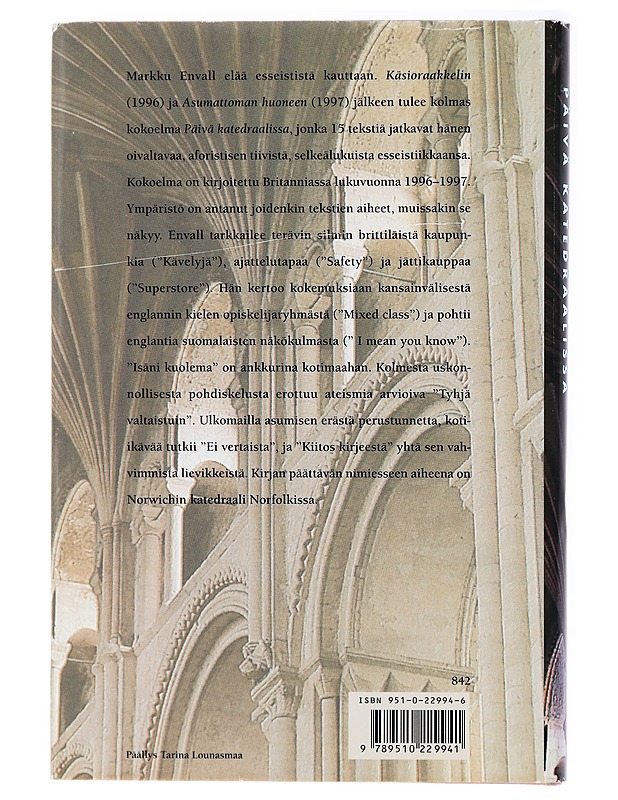 Markku Envall elää esseististä kauttaan. Käsioraakkelin
(1996) ja Asumattoman huoneen (1997) jälkeen tulee kolmas
kokoelma Päivä katedraalissa, jonka 15 tekstiä jatkavat hänen
oivaltavaa, aforistisen tiivistä, selkeälukuista esseistiikkaansa.
Kokoelma on kirjoitettu Britanniassa lukuvuonna 1996–1997.
Ympäristö on antanut joidenkin tekstien aiheet, muissakin se
näkyy. Envall tarkkailee terävin silmin brittiläistä kaupun-
kia (”Kävelyjä”), ajattelutapaa (”Safety”) ja jättikauppaa
(”Superstore”). Hän kertoo kokemuksiaan kansainvälisestä
englannin kielen opiskelijaryhmästä (”Mixed class”) ja pohtii
englantia suomalaisten näkökulmasta (” I mean you know”).
”Isäni kuolema” on ankkurina kotimaahan. Kolmesta uskon-
nollisesta pohdiskelusta erottuu ateismia arvioiva ”Tyhjä
valtaistuin”. Ulkomailla asumisen erästä perustunnetta, koti-
ikävää tutkii ”Ei vertaista”, ja ”Kiitos kirjeestä” yhtä sen vah-
vimmista lievikkeistä. Kirjan päättävän nimiesseen aiheena on
Norwichin katedraali Norfolkissa.
842
ISBN 951-0-22994-6
9 789510 229941
Päällys Tarina Lounasmaa
PÄIVÄ KATEDRAALISSA